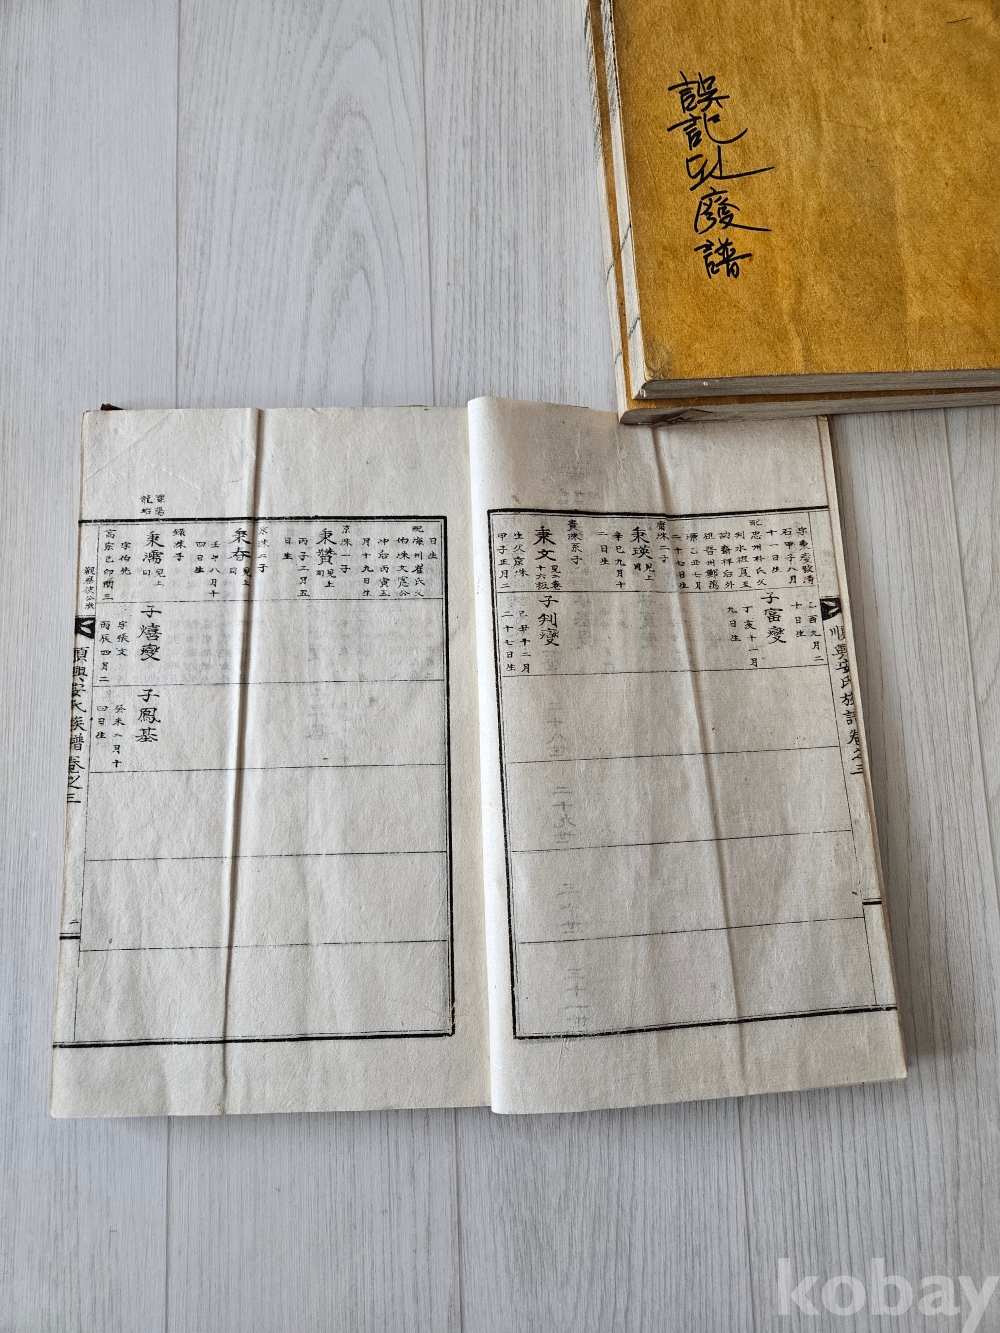 誤記
廢譜
順興安氏族譜卷之三
十日生
乙酉九月二
子富燮
丁亥十一月
九日生
石甲子八月
十一日生
配忠州朴氏父
祖晋州鄭萬
二十七日生
齊洙二子
秉瑛見上
辛巳九月十
二日生
貴洙系子
秉文見二卷
十六板
生父京洙
甲子正月二
子釗燮
己丑十二月
二十七日生
日生
配海州崔氏父
月十九日生
京洙一子
秉贊見上
司
丙子二月五
日生
京洙二子
秉春見上
司
壬午八月十
四日生
秉濡見上
司
字伯先
高宗己卯閏三
觀察使公派
子熺燮
字張文
丙辰四月二
子鳳基
癸未八月十
四日生
順興安氏族譜卷之三
二
kobay